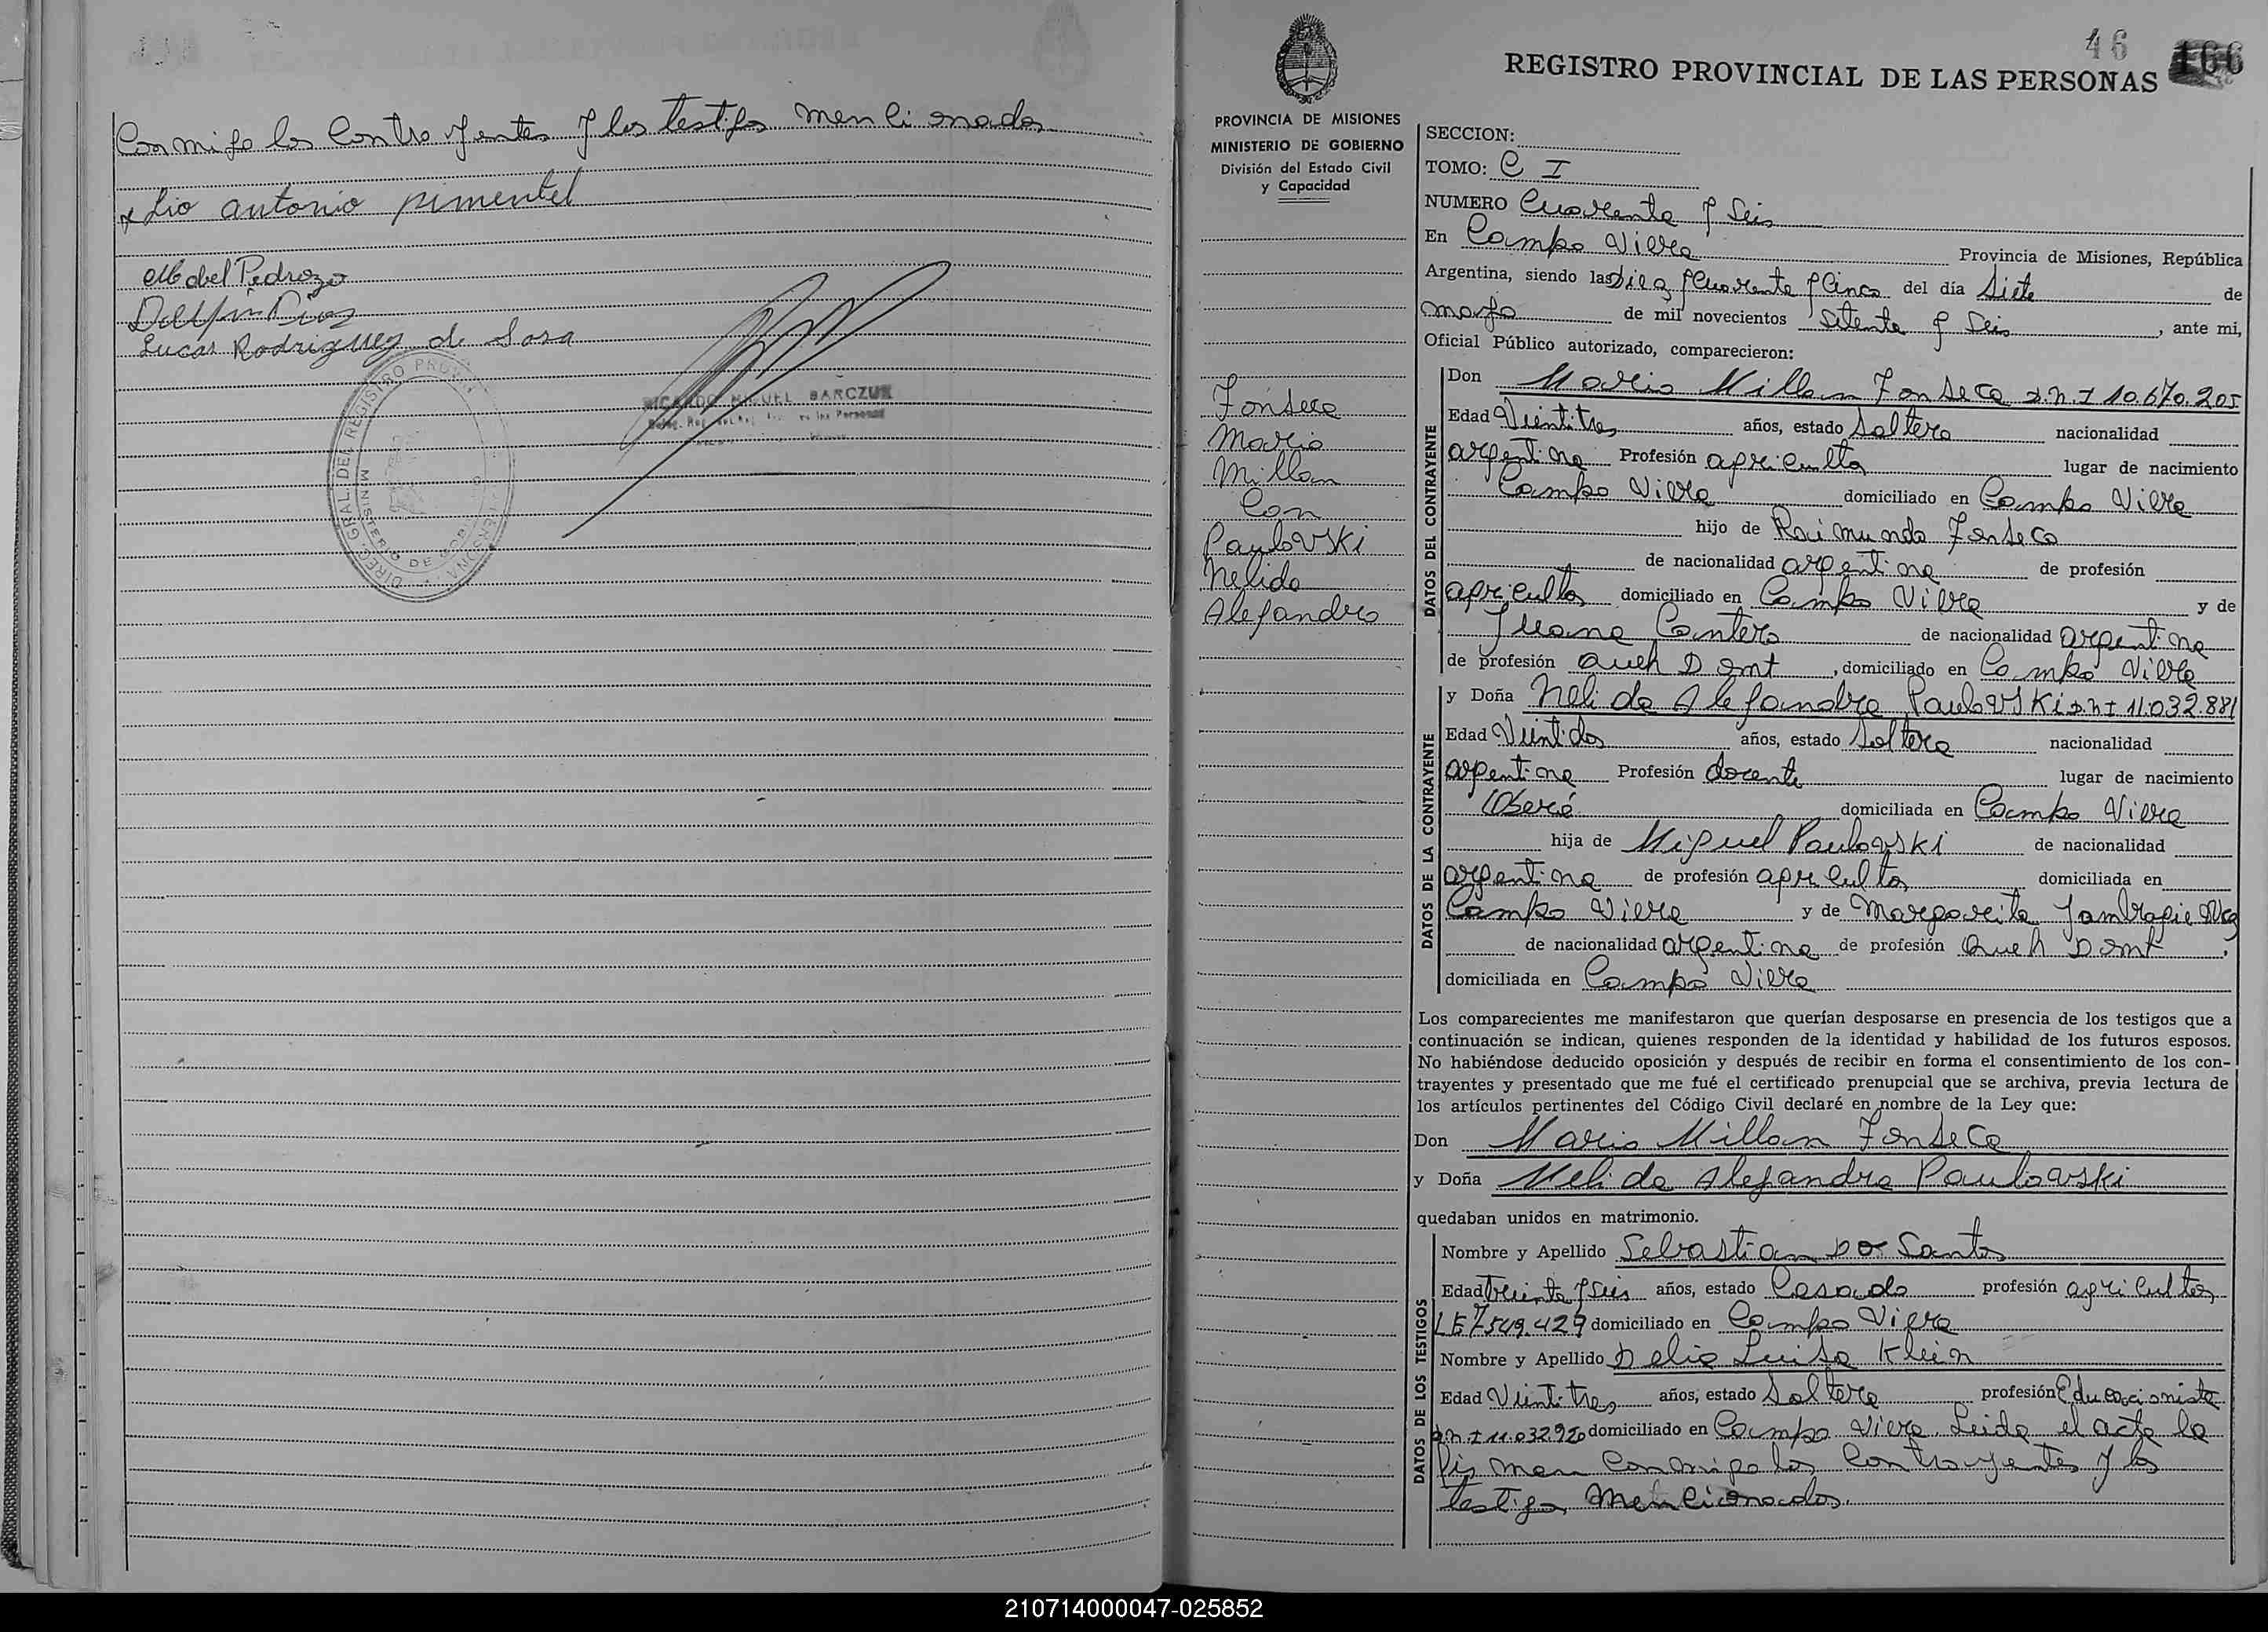 Conmigo los Contrayentes y los testigos mencionados
x Lio antonio pimentel
Mabel Pedrozo
Delfin Diaz
Lucas Rodriguez de Sosa
RICARDO MIGUEL BARCZUK
DIREC. GRAL. DEL REGISTRO PROV.
MINISTERIO DE GOB.
46 166
REGISTRO PROVINCIAL DE LAS PERSONAS
PROVINCIA DE MISIONES
MINISTERIO DE GOBIERNO
División del Estado Civil
y Capacidad
Fonseca
Mario
Millan
Con
Paulovski
Nelida
Alejandra
SECCION:
TOMO: C I
NUMERO Cuarenta y Seis
En Campo Viera Provincia de Misiones, República
Argentina, siendo las Diez y Cuarenta y Cinco del día Siete de
mayo de mil novecientos Setenta y Seis, ante mi,
Oficial Público autorizado, comparecieron:
DATOS DEL CONTRAYENTE
Don Mario Millan Fonseca D.N.I 10.670.205
Edad Veintitres años, estado Soltero nacionalidad
argentina Profesión agriculto lugar de nacimiento
Campo Viera domiciliado en Campo Viera
hijo de Raimundo Fonseca
de nacionalidad argentina de profesión
agricultor domiciliado en Campo Viera y de
Juana Cantero de nacionalidad argentina
de profesión Queh Domt, domiciliado en Campo Viera
DATOS DE LA CONTRAYENTE
y Doña Nelida Alejandra Paulovski D.N.I 11.032.881
Edad Veintidos años, estado Soltera nacionalidad
argentina Profesión docente lugar de nacimiento
Oberá domiciliada en Campo Viera
hija de Miguel Paulovski de nacionalidad
argentina de profesión agricultor domiciliada en
Campo Viera y de Margarita
de nacionalidad argentina de profesión Queh Domt,
domiciliada en Campo Viera
Los comparecientes me manifestaron que querían desposarse en presencia de los testigos que a
continuación se indican, quienes responden de la identidad y habilidad de los futuros esposos.
No habiéndose deducido oposición y después de recibir en forma el consentimiento de los con-
trayentes y presentado que me fué el certificado prenupcial que se archiva, previa lectura de
los artículos pertinentes del Código Civil declaré en nombre de la Ley que:
Don Mario Millan Fonseca
y Doña Nelida Alejandra Paulovski
quedaban unidos en matrimonio.
DATOS DE LOS TESTIGOS
Nombre y Apellido Sebastian Dos Santos
Edad treinta y Seis años, estado Casado profesión agricultor
LE 7549.429 domiciliado en Campo Viera
Nombre y Apellido Delia Luisa Klein
Edad Veintitres años, estado Soltera profesión Educacionista
D.N.I 11.032.920 domiciliado en Campo Viera. Leida el acta la
firman Conmigo los Contrayentes y los
testigos Mencionados.
210714000047-025852